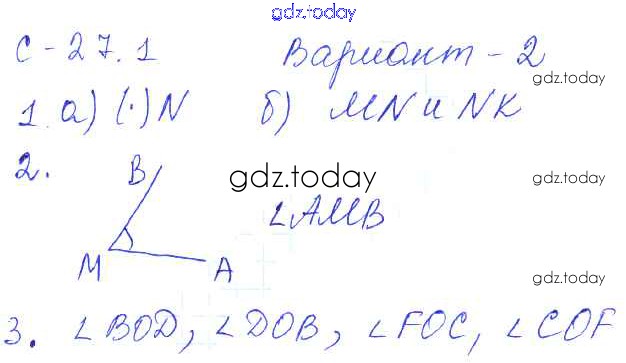 gdz.today
С-27.1 Вариант-2
gdz.today
1. а) (·) N б) MN и NK
gdz.today
2. B
gdz.today
gdz.today
∠AMB
M A
gdz.today
3. ∠BOD, ∠DOB, ∠FOC, ∠COF